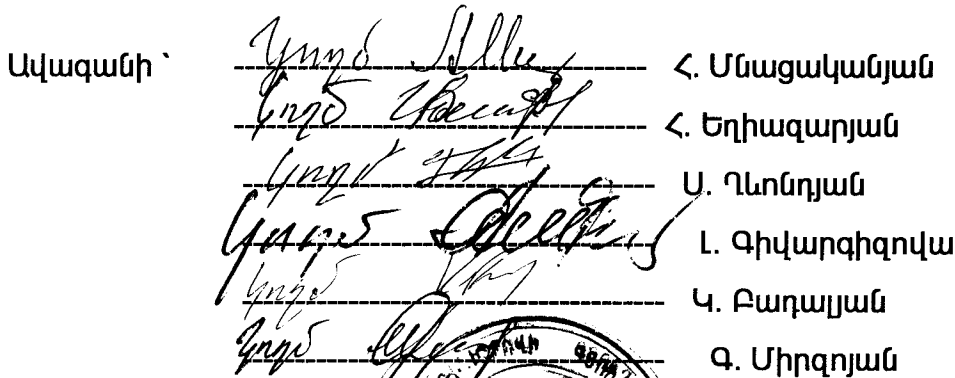 Ավագանի ՝ Կողմ Հ. Մնացականյան
Կողմ Հ. Եղիազարյան
Կողմ Ս. Ղևոնդյան
Կողմ Լ. Գիվարգիզովա
Կողմ Կ. Բադալյան
Կողմ Գ. Միրզոյան